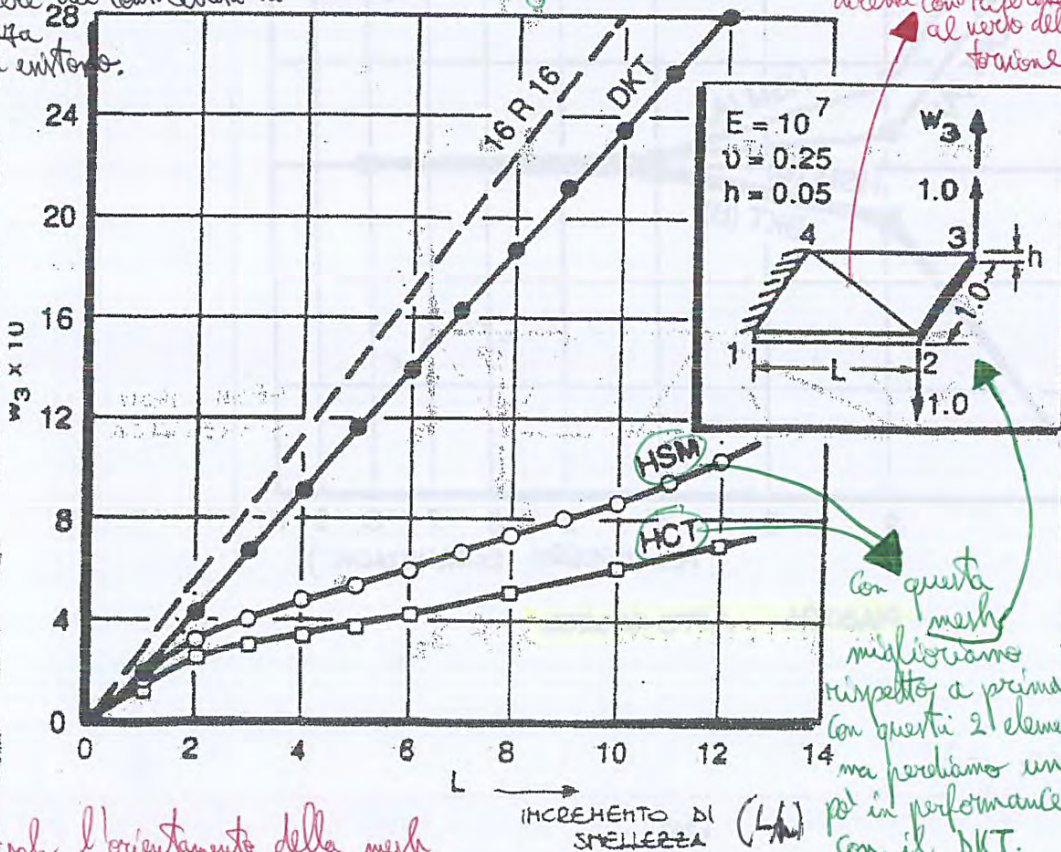 a entrano.
al verso della
torsione
28
24
20
16
12
8
4
0
w₃ x 10
16 R 16
DKT
HSM
HCT
E = 10⁷
υ = 0.25
h = 0.05
w₃
1.0
4
3
h
1.0
1
2
L
1.0
0
2
4
6
8
10
12
14
L
INCREMENTO DI
SNELLEZZA (L/h)
con questa
mesh
miglioriamo
rispetto a prima
con questi 2 eleme
ma perdiamo un
po' in performance
con il DKT.
l'orientamento della mesh